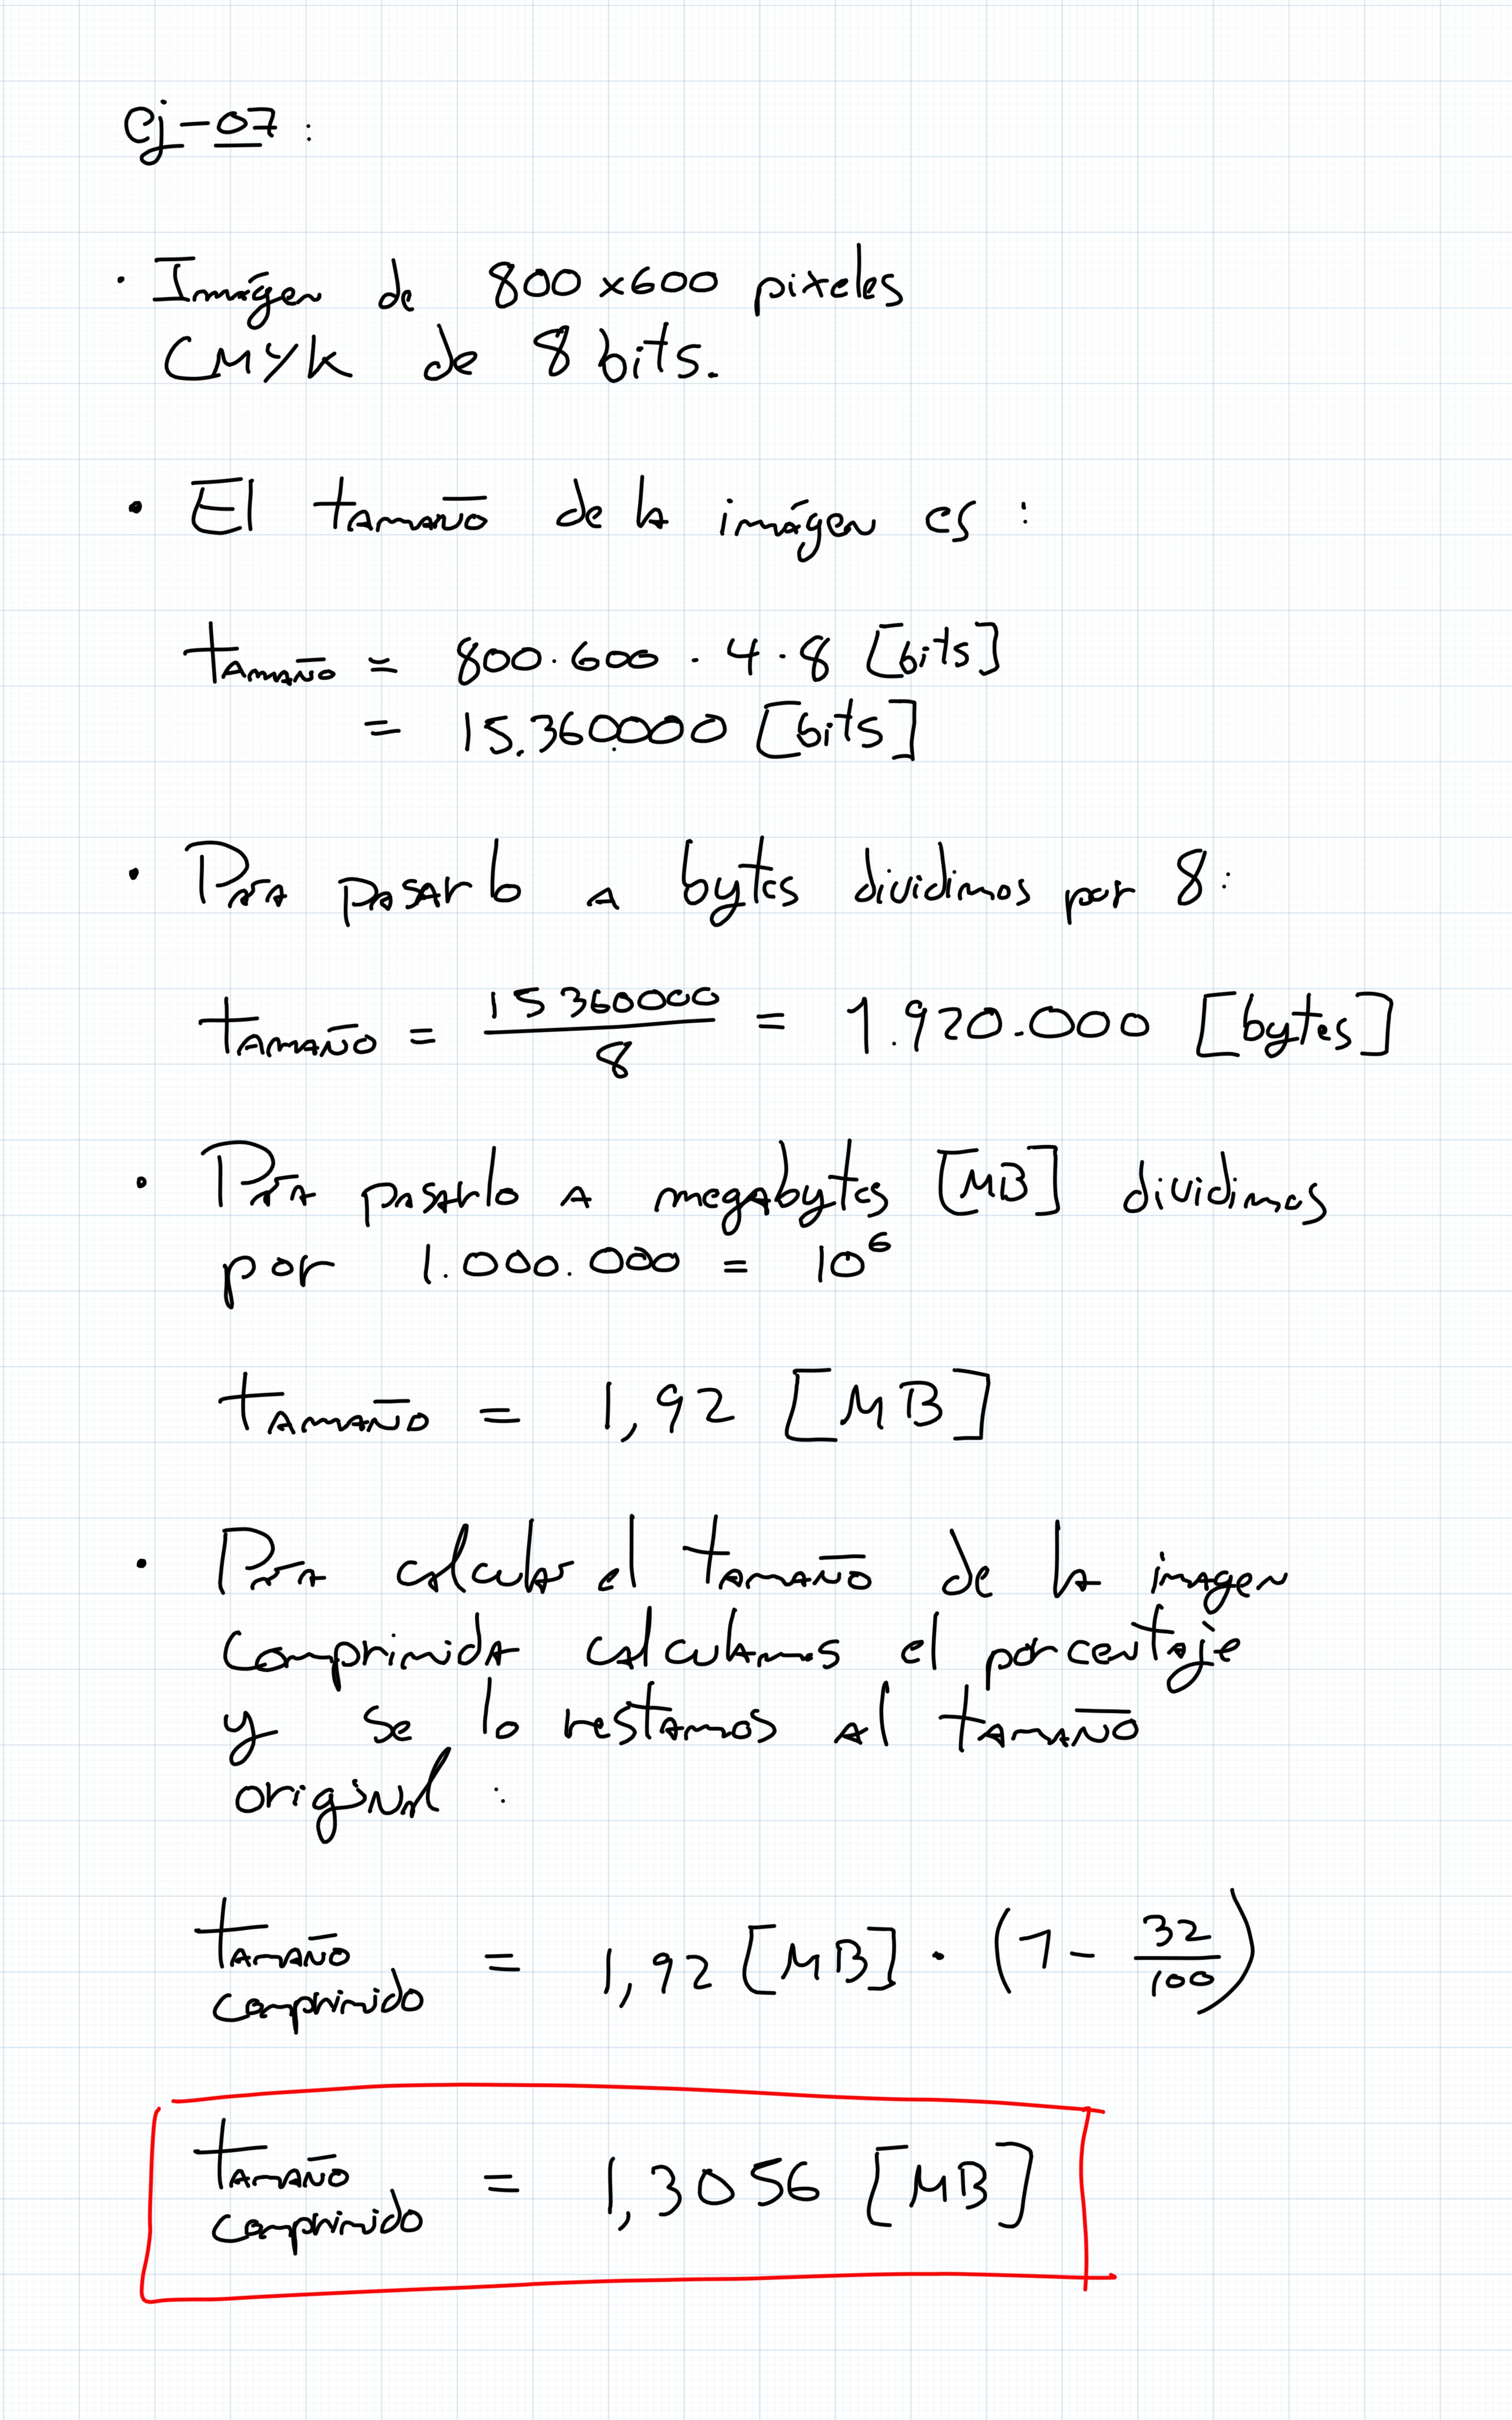 ej-07:
· Imágen de 800x600 pixeles
CMYK de 8 bits.
· El tamaño de la imágen es:
tamaño = 800·600·4·8 [bits]
= 15.360.000 [bits]
· Para pasarlo a bytes dividimos por 8:
tamaño = 15360000/8 = 1.920.000 [bytes]
· Para pasarlo a megabytes [MB] dividimos
por 1.000.000 = 10⁶
tamaño = 1,92 [MB]
· Para calcular el tamaño de la imagen
comprimida calculamos el porcentaje
y se lo restamos al tamaño
original:
tamaño comprimido = 1,92 [MB] · (1 - 32/100)
tamaño comprimido = 1,3056 [MB]